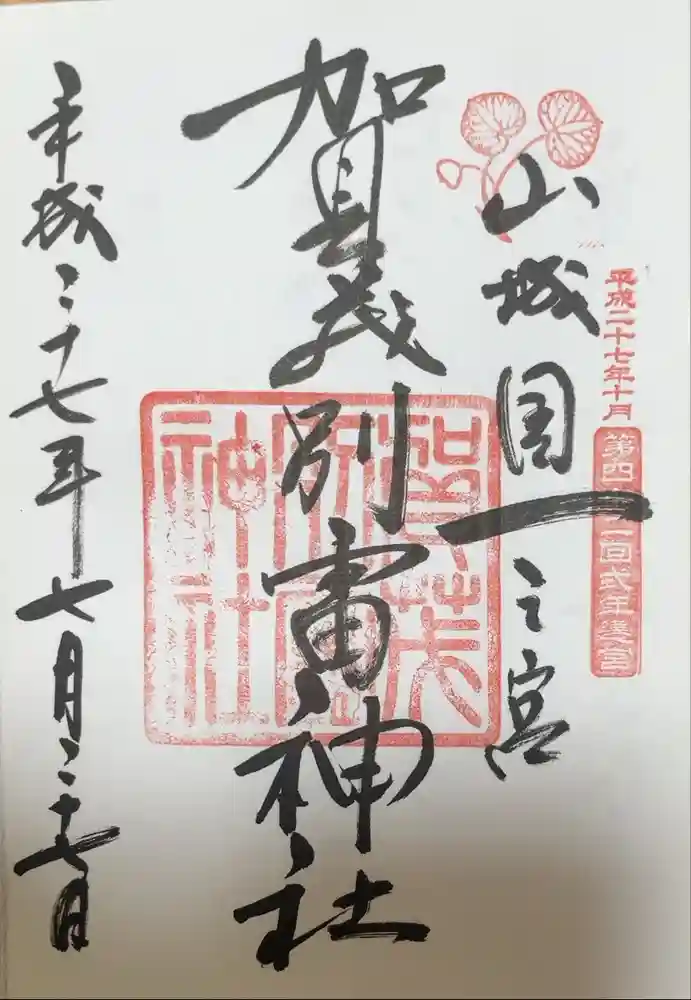 平成二十七年十月
第四十二回式年遷宮
山城国一之宮
賀茂別雷神社
平成二十七年七月二十七日
賀茂
神社